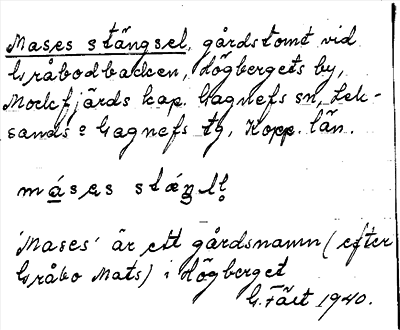 Mases stängsel, gårdstomt vid
Gråbodbacken, Högbergets by,
Mockfjärds kap. Gagnefs sn, Lek-
sands o Gagnefs tg, Kopp. län.
'Mases' är ett gårdsnamn (efter
Gråbo Mats) i Högberget
1940.